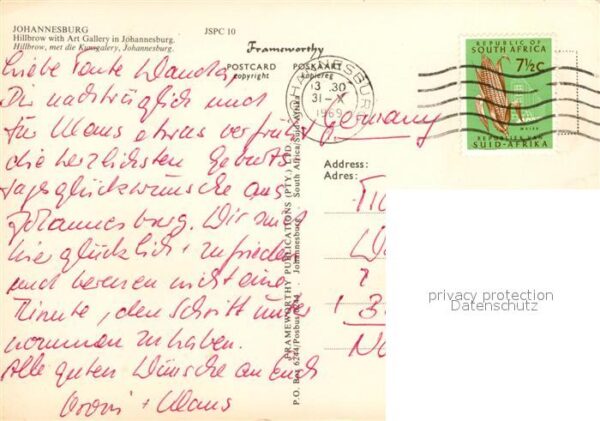 JOHANNESBURG
Hillbrow with Art Gallery in Johannesburg.
Hillbrow, met die Kunsgalery, Johannesburg.
JSPC 10
Frameworthy
POSTCARD
copyright
POSKAART
kopiereg
JOHANNESBURG
13 30
31-X
1969
REPUBLIC OF
SOUTH AFRICA
7½c
REPUBLIEK VAN
SUID-AFRIKA
Liebe Tante Wanda,
Dir nachträglich und
für Klaus etwas verfrüht
die herzlichsten Geburts
tagsglückwünsche aus
Johannesburg. Wir sind
hier glücklich + zufrieden
und bereuen nicht eine
Minute, den Schritt unter
nommen zu haben.
Alle guten Wünsche an Euch
+ Klaus
Germany
Address:
Adres:
FRAMEWORTHY PUBLICATIONS (PTY.) LTD.
P.O. Box 6244/Posbus 6244 · Johannesburg · South Africa/Suid-Afrika
privacy protection
Datenschutz